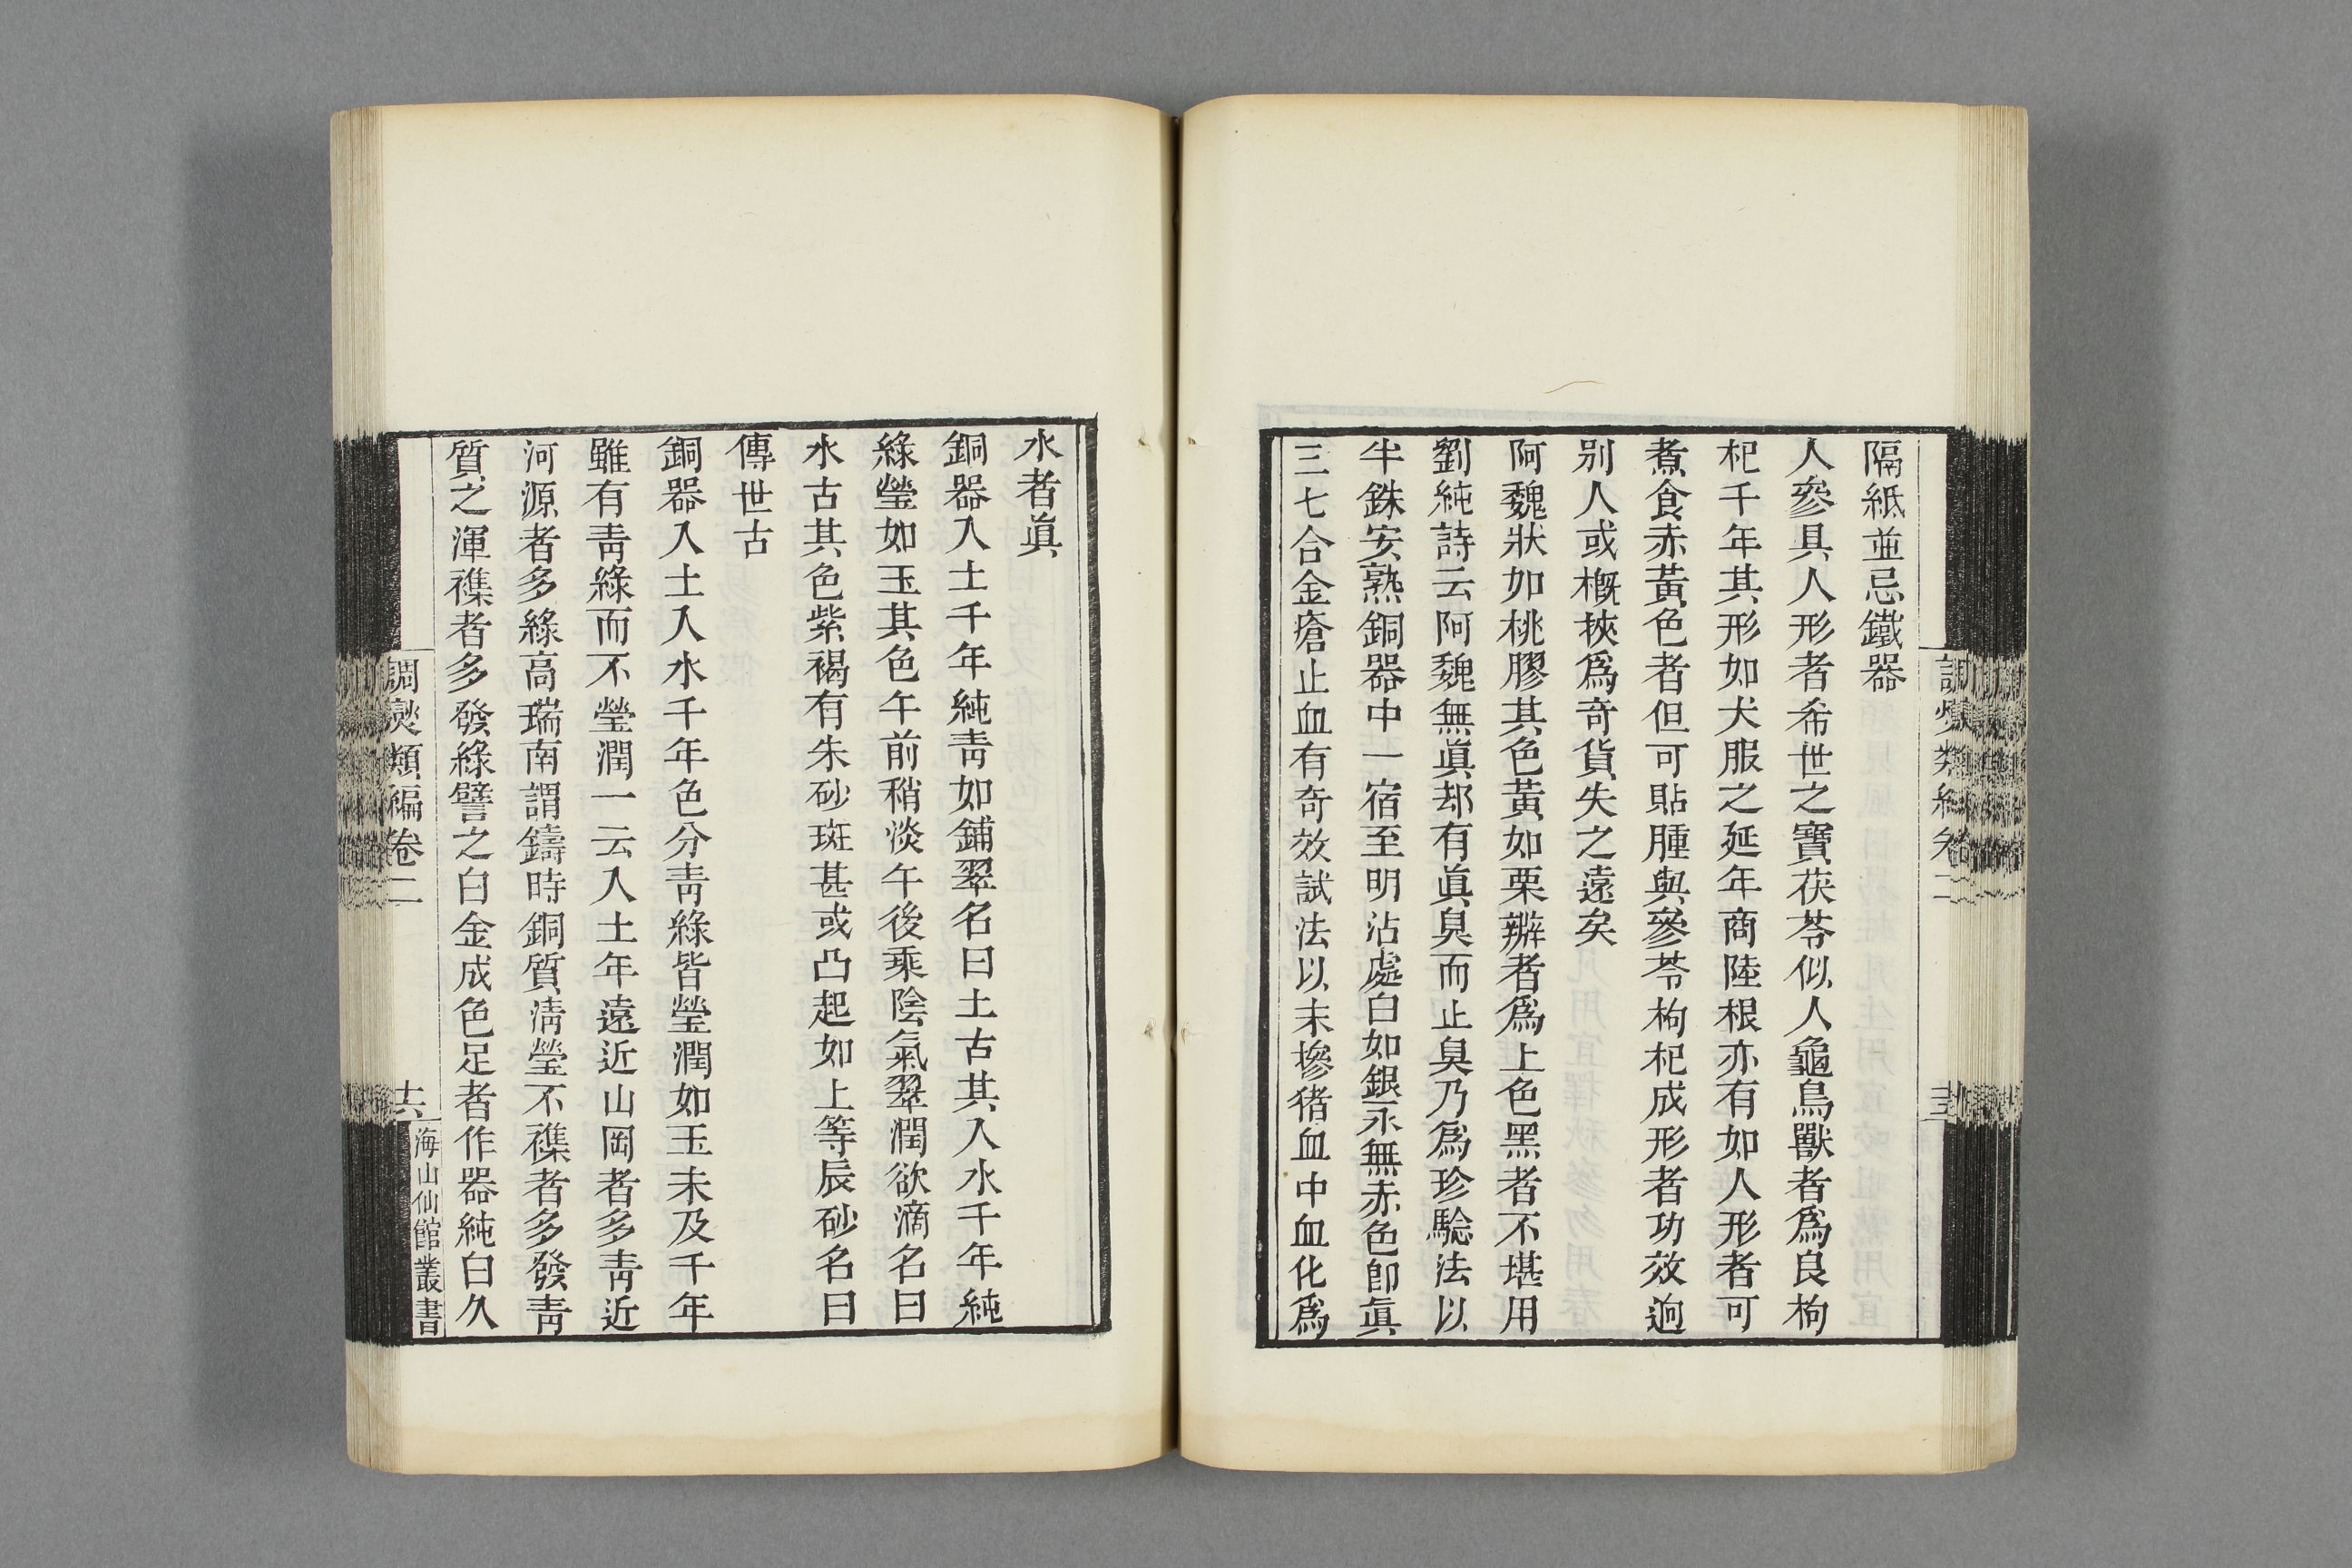 隔紙並忌鐵器
人參具人形者希世之寶茯苓似人龜鳥獸者爲良枸
杞千年其形如犬服之延年商陸根亦有如人形者可
煮食赤黃色者但可貼腫與參苓枸杞成形者功效逈
別人或槪挾爲奇貨失之遠矣
阿魏狀如桃膠其色黃如栗辨者爲上色黑者不堪用
劉純詩云阿魏無眞却有眞臭而止臭乃爲珍騐法以
半銖安熟銅器中一宿至明沾處白如銀永無赤色卽眞
三七合金瘡止血有奇效試法以末摻猪血中血化爲
水者眞
銅器入土千年純靑如鋪翠名曰土古其入水千年純
綠瑩如玉其色午前稍淡午後乘陰氣翠潤欲滴名曰
水古其色紫褐有朱砂斑甚或凸起如上等辰砂名曰
傳世古
銅器入土入水千年色分靑綠皆瑩潤如玉未及千年
雖有靑綠而不瑩潤一云入土年遠近山岡者多靑近
河源者多綠高瑞南謂鑄時銅質淸瑩不襍者多發靑
質之渾襍者多發綠譬之白金成色足者作器純白久
調燮類編卷二
十六
海山仙館叢書